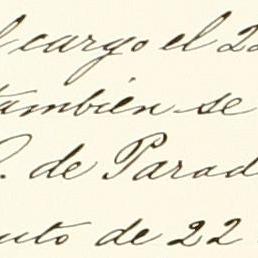 l cargo el 22
también se
P. de Parad
nto de 22